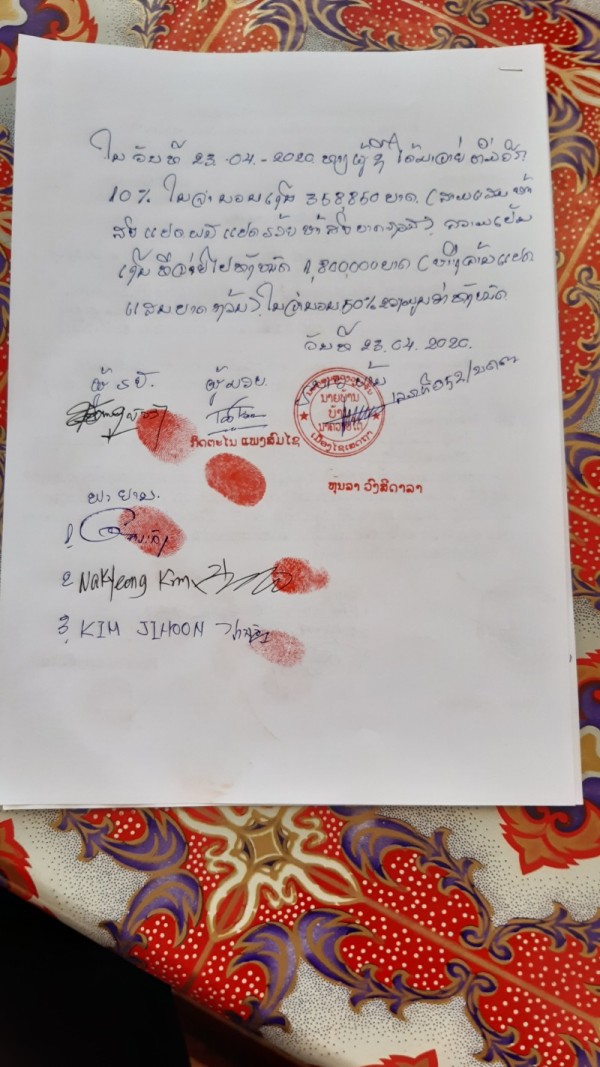 ໃນ ວັນທີ 23.-04.-2020. ທາງຜູ້ຊື້ ໄດ້ມາຈ່າຍ ຕື່ມອີກ
10% ໃນຈຳນວນເງິນ 358,850 ບາດ. (ສາມແສນ ຫ້າ
ສິບ ແປດພັນ ແປດຮ້ອຍ ຫ້າສິບບາດຖ້ວນ). ລວມເປັນ
ເງິນ ທີ່ຈ່າຍໄປທັງໝົດ 1,800,000 ບາດ (ໜຶ່ງລ້ານແປດ
ແສນບາດຖ້ວນ). ໃນຈຳນວນ 50% ຂອງມູນຄ່າທັງໝົດ
ວັນທີ 23.04.2020.
ຜູ້ຮັບ. ຜູ້ມອບ. ນາຍບ້ານ
ນາຍບ້ານ
ບ້ານ
ກິດຕະໄນ ແພງສົມໄຊ
ທຸນລາ ວົງສີດາລາ
ພະຍານ.
1,
2, Nakyeong Kim
3, KIM JIHOON